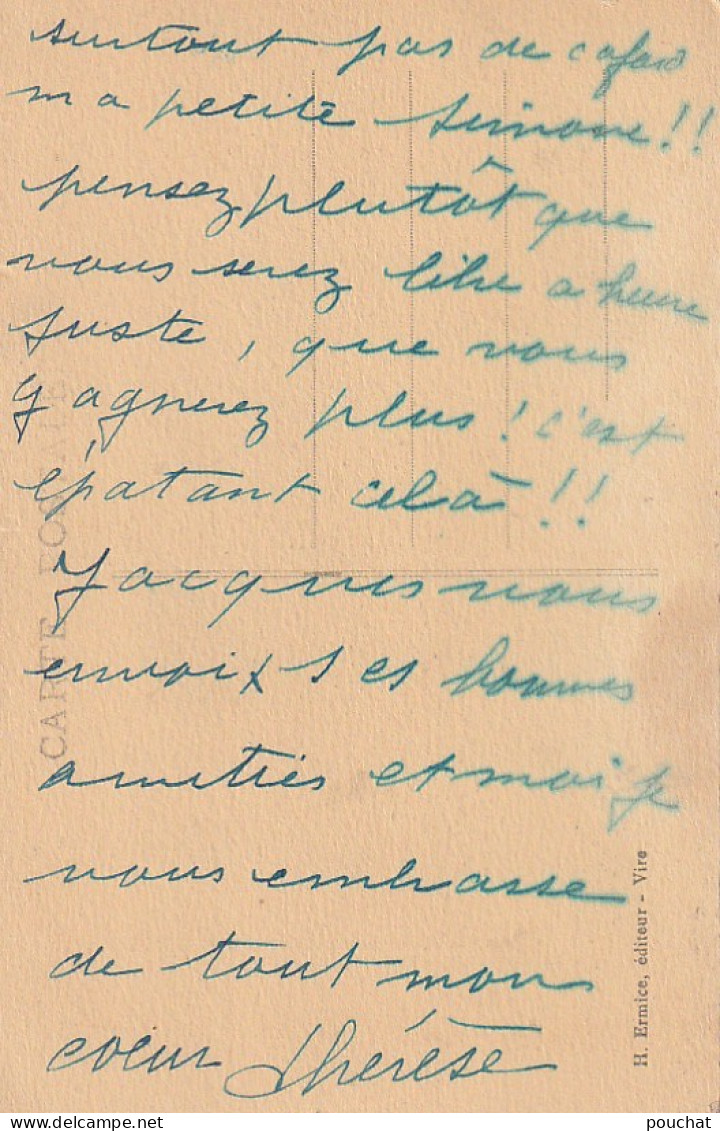 surtout pas de cafard
ma petite Simone !!
pensez plutôt que
vous serez libre a heure
juste, que vous
gagnerez plus ! c'est
épatant celà !!
Jacques vous
envoix ses bonnes
amitiés et moi je
vous embrasse
de tout mon
coeur Thérèse
CARTE POSTALE
H. Ermice, éditeur - Vire
pouchat